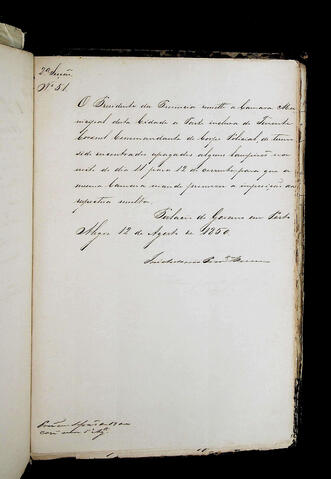 2ª Secção
Nº 51.
O Presidente da Provincia remette a Camara Mu
nicipal desta Cidade a Parte inclusa do Tenente
Coronel Commandante do Corpo Policial de terem
sido encontrados apagados alguns lampiões na
noite do dia 11 para 12 do corrente para que a
mesma Camara mande promover a imposição da
respectiva multa.
Palacio do Governo em Porto
Alegre 12 de Agosto de 1850